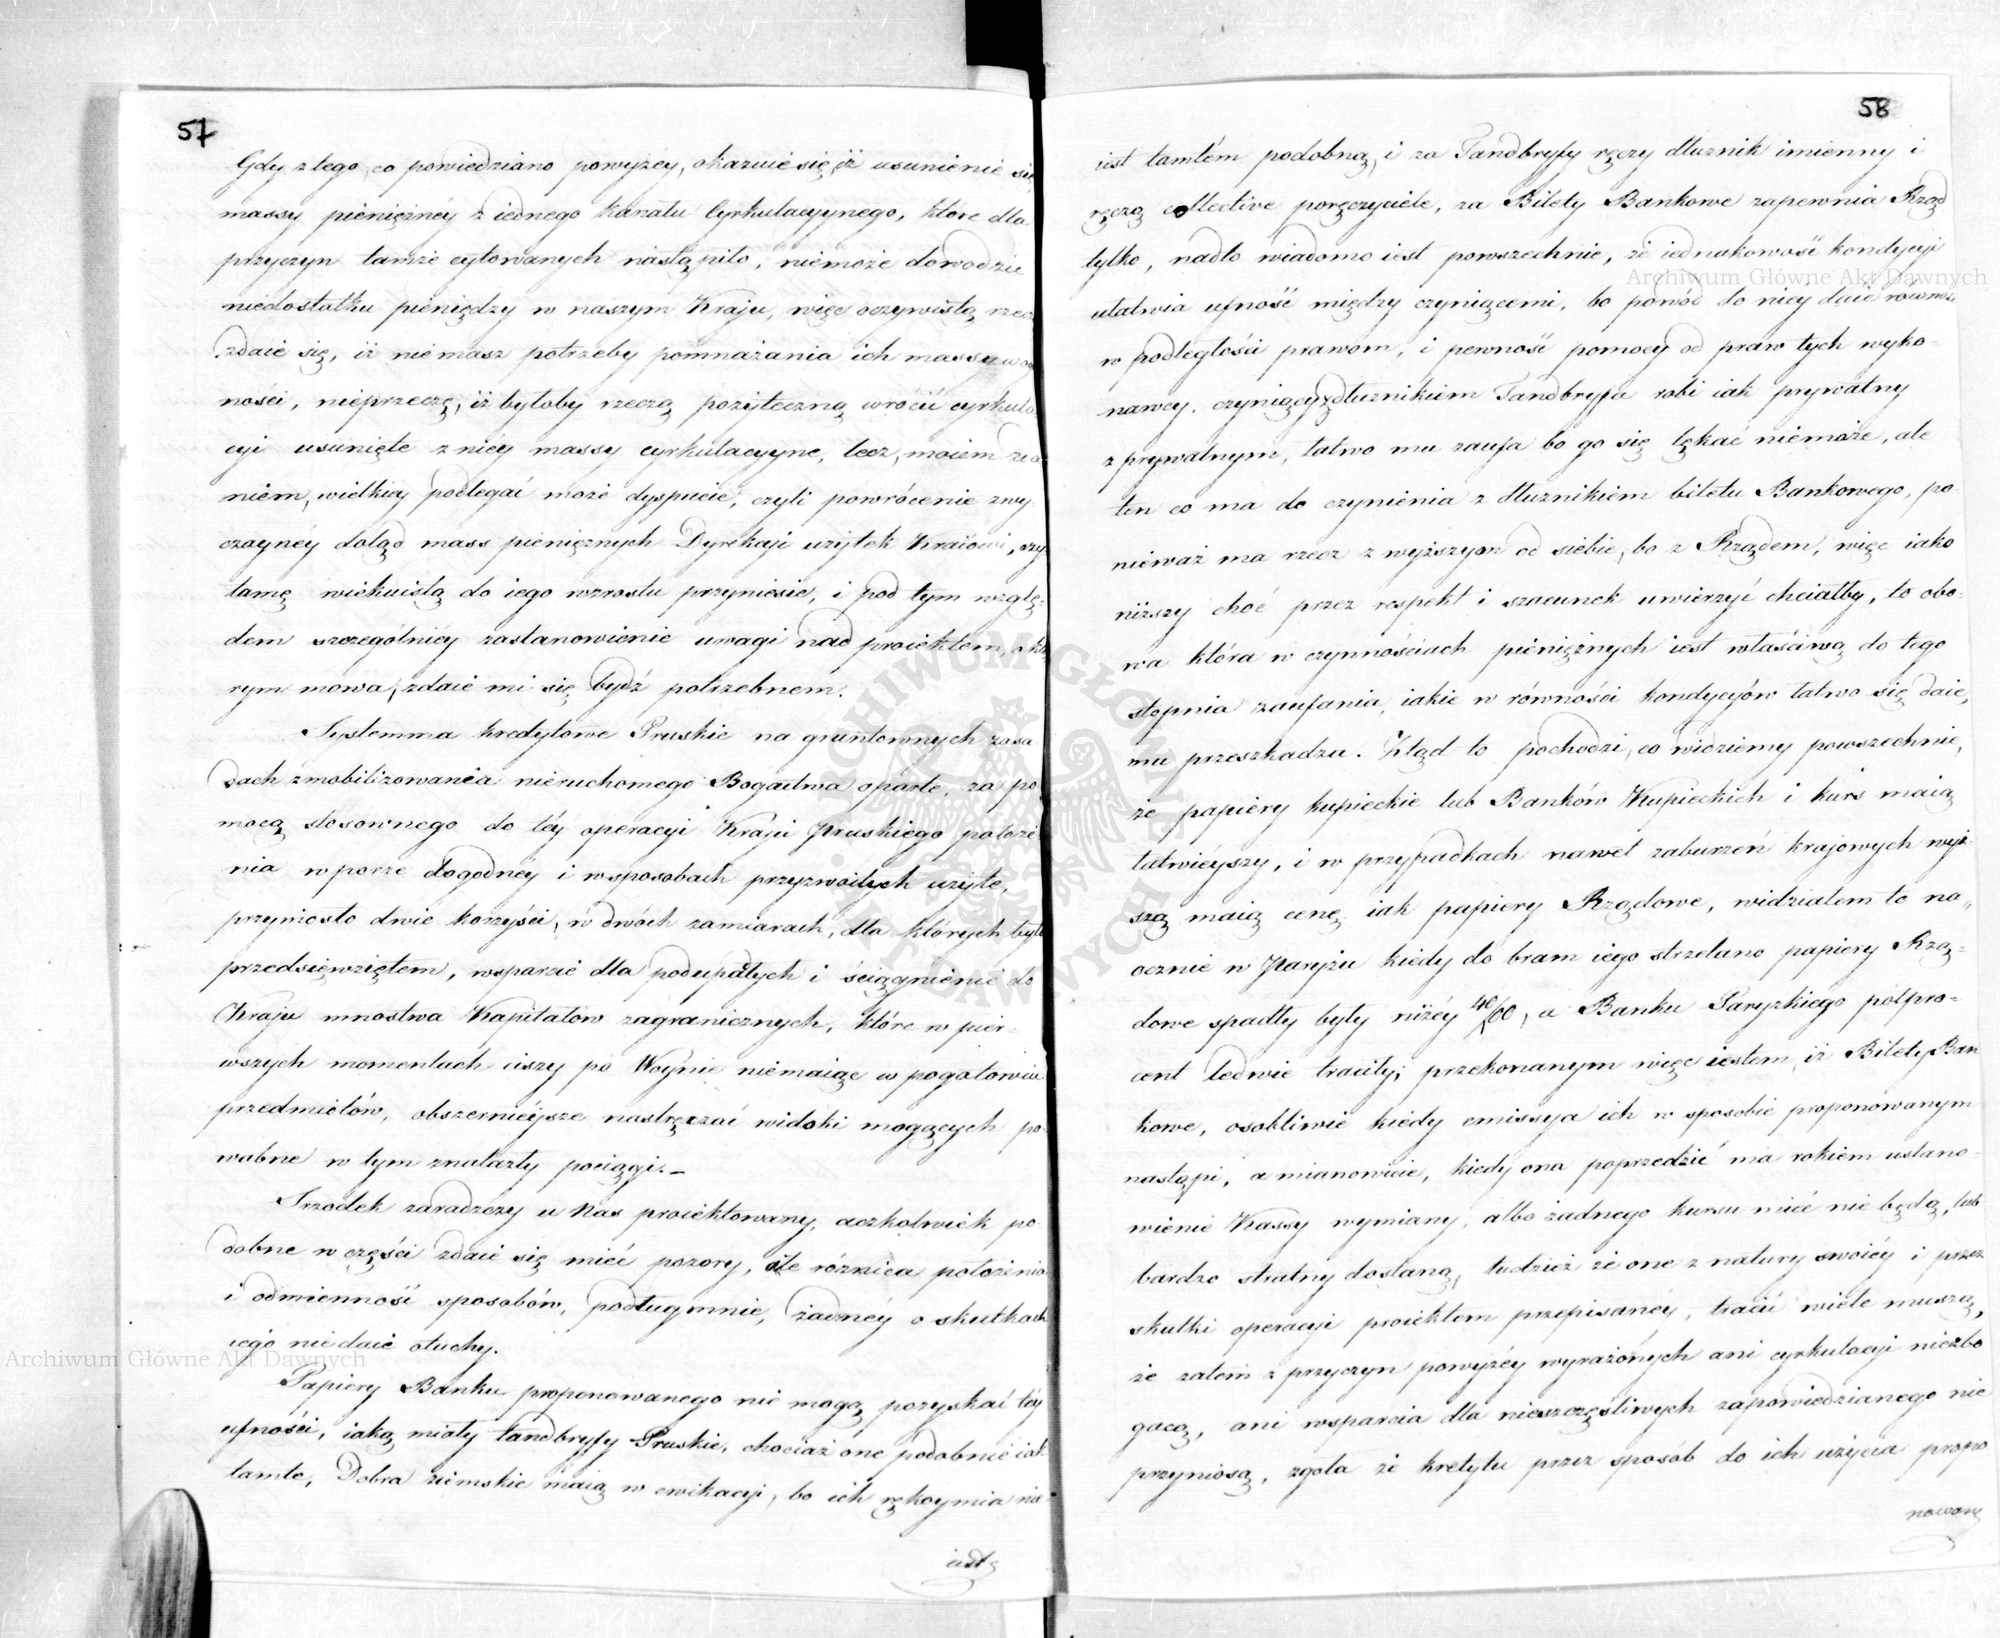 57
Gdy z tego, co powiedziano powyżéy, okazuie się, iż usunienie się
massy pieniężnéy z iednego kanału Cyrkulacyynego, które dla
przyczyn tamże cytowanych nastąpiło, niemoże dowodzić
niedostatku pieniędzy w naszym Kraju, więc oczywistą rzecz
zdaie się, iż niemasz potrzeby pomnażania ich massy w
ności, nieprzeczę, iż byłoby rzeczą pożyteczną wrócić cyrkula
cyi usunięte z niey massy cyrkulacyyne, lecz, moiem zda
niem, wielkiey podlegać może dyspucie, czyli powrócenie zwy
czaynéy dotąd mass pieniężnych Dyrekcyi użytek Kraiowi, czy
tamę wiekuistą do iego wzrostu przyniesie, i pod tym wzglę-
dem szczególniéy zastanowienie uwagi nad proiektem, o któ
rym mowa, zdaie mi się bydź potrzebnem.
Systemma kredytowe Pruskie na gruntownych zasa
dach zmobilizowania nieruchomego Bogactwa oparte, za po
mocą stosownego do téy operacyi Kraju Pruskiego położe
nia w porze dogodnéy i w sposobach przyzwoitych użyte,
przyniosło dwie korzyści, w dwóch zamiarach, dla których było
przedsięwziętem, wsparcie dla podupadłych i ściągnienie do
Kraju mnostwa Kapitałów zagranicznych, które w pier-
wszych momentach ciszy po Woynie niemaiąc w pogotowiu
przedmiotów, obszernieysze nastręczać widoki mogących po-
wabne w tym znalazły pociągi.–
Srzodek zaradzczy u Nas proiektowany, aczkolwiek po-
dobne w części zdaie się mieć pozory, ile różnica położenia
i odmienność sposobów, podług mnie, żadnéy o skutkach
iego nie daie otuchy.
Papiery Banku proponowanego nie mogą pozyskać téy
ufności, iaką miały Landbryfy Pruskie, chociaż one podobnie iak
tamte, Dobra ziemskie maią w ewikcyi, bo ich rękoymia nie
iest
58
iest tamtém podobną, i za Landbryfy ręczy dłużnik imienny i
ręczą collective poręczyciele, za Bilety Bankowe zapewnia Rząd
tylko, nadto wiadomo iest powszechnie, że iednakowość kondycyi
ułatwia ufność między czyniącemi, bo powód do niey daie równość
w podległości prawom, i pewność pomocy od praw tych wyko-
nawcy, czyniący z dłużnikiem Landbryfa robi iak prywatny
z prywatnym, łatwo mu zaufa bo go się lękać niemoże, ale
ten co ma do czynienia z dłużnikiem biletu Bankowego, po
nieważ ma rzecz z wyższym od siebie, bo z Rządem, więc iako
niższy choć przez respekt i szacunek uwierzyć chciałby, to obo-
wa która w czynnościach pieniężnych iest właściwą do tego
stopnia zaufania, iakie w równości kondycyów łatwo się daie,
mu przeszkadza. Ztąd to pochodzi, co widziemy powszechnie,
że papiery kupieckie lub Banków Kupieckich i kurs maią
łatwieyszy, i w przypadkach nawet zaburzeń krajowych wyż-
szą maią cenę iak papiery Rządowe, widziałem to na„
ocznie w Paryżu kiedy do bram iego strzelano papiery Rzą-
dowe spadły były niżéy 40/60, a Banku Paryzkiego półpro-
cent ledwie traciły; przekonanym więc iestem, iż Bilety Ban
kowe, osobliwie kiedy emissya ich w sposobie proponowanym
nastąpi, a mianowicie, kiedy ona poprzedzić ma rokiem ustano-
wienie Kassy wymiany, albo żadnego kursu mieć nie będą, lub
bardzo stratny dostaną, tudzież że one z natury swoiéy i przez
skutki operacyi proiektem przepisanéy, tracić wiele muszą,
że zatem z przyczyn powyżéy wyrażonych ani cyrkulacyi niezbo
gacą, ani wsparcia dla nieszczęśliwych zapowiedzianego nie
przyniosą, zgoła że kredytu przez sposób do ich użycia propo
nowany
Archiwum Główne Akt Dawnych
Archiwum Główne Akt Dawnych
ARCHIWUM GŁÓWNE AKT DAWNYCH